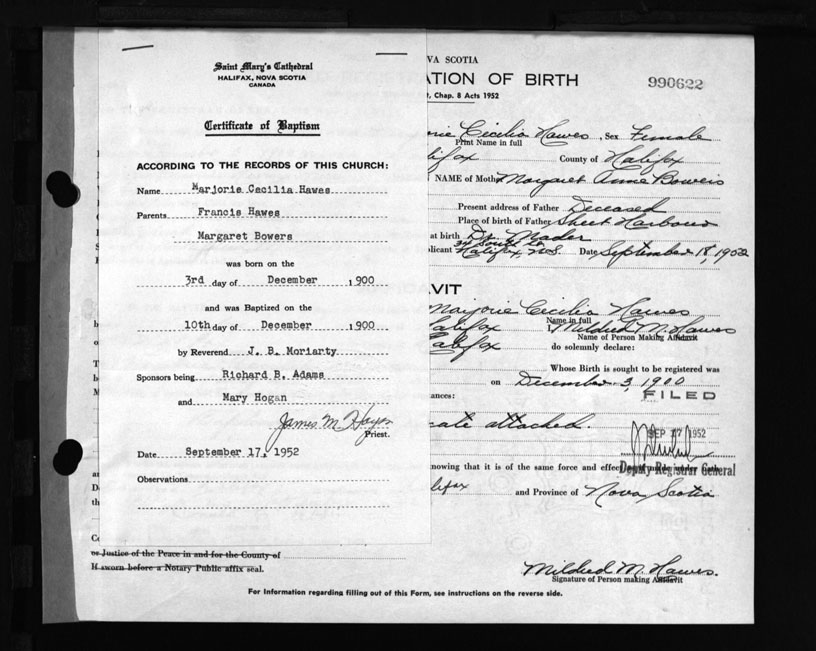 Saint Mary's Cathedral
HALIFAX, NOVA SCOTIA
CANADA
Certificate of Baptism
ACCORDING TO THE RECORDS OF THIS CHURCH:
Name Marjorie Cecilia Hawes
Parents Francis Hawes
Margaret Bowers
was born on the
3rd day of December , 1900
and was Baptized on the
10th day of December , 1900
by Reverend J. B. Moriarty
Sponsors being Richard B. Adams
and Mary Hogan
James M. Hayes
Priest.
Date September 17, 1952
Observations
or Justice of the Peace in and for the County of
If sworn before a Notary Public affix seal.
VA SCOTIA
ATION OF BIRTH
990622
, Chap. 8 Acts 1952
rie Cecilia Hawes , Sex Female
Print Name in full
lifax County of Halifax
NAME of Mother Margaret Anne Bowers
Present address of Father Deceased
Place of birth of Father Sheet Harbour
at birth Dr. Mader
plicant 34 South St.
Halifax N.S. Date September 18, 1952
VIT
Marjorie Cecilia Hawes
Name in full
alifax I, Mildred M. Hawes
Name of Person Making Affidavit
alifax do solemnly declare:
Whose Birth is sought to be registered was
on December 3, 1900
ances: FILED
cate attached.
SEP 17 1952
nowing that it is of the same force and effect
Deputy Registrar General
lifax and Province of Nova Scotia
Mildred M. Hawes.
Signature of Person making Affidavit
For Information regarding filling out of this Form, see instructions on the reverse side.